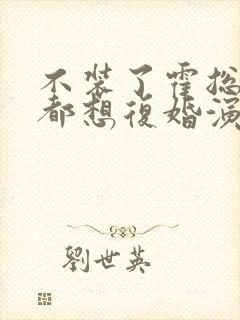 不装了霍总
都想復婚演
劉世英